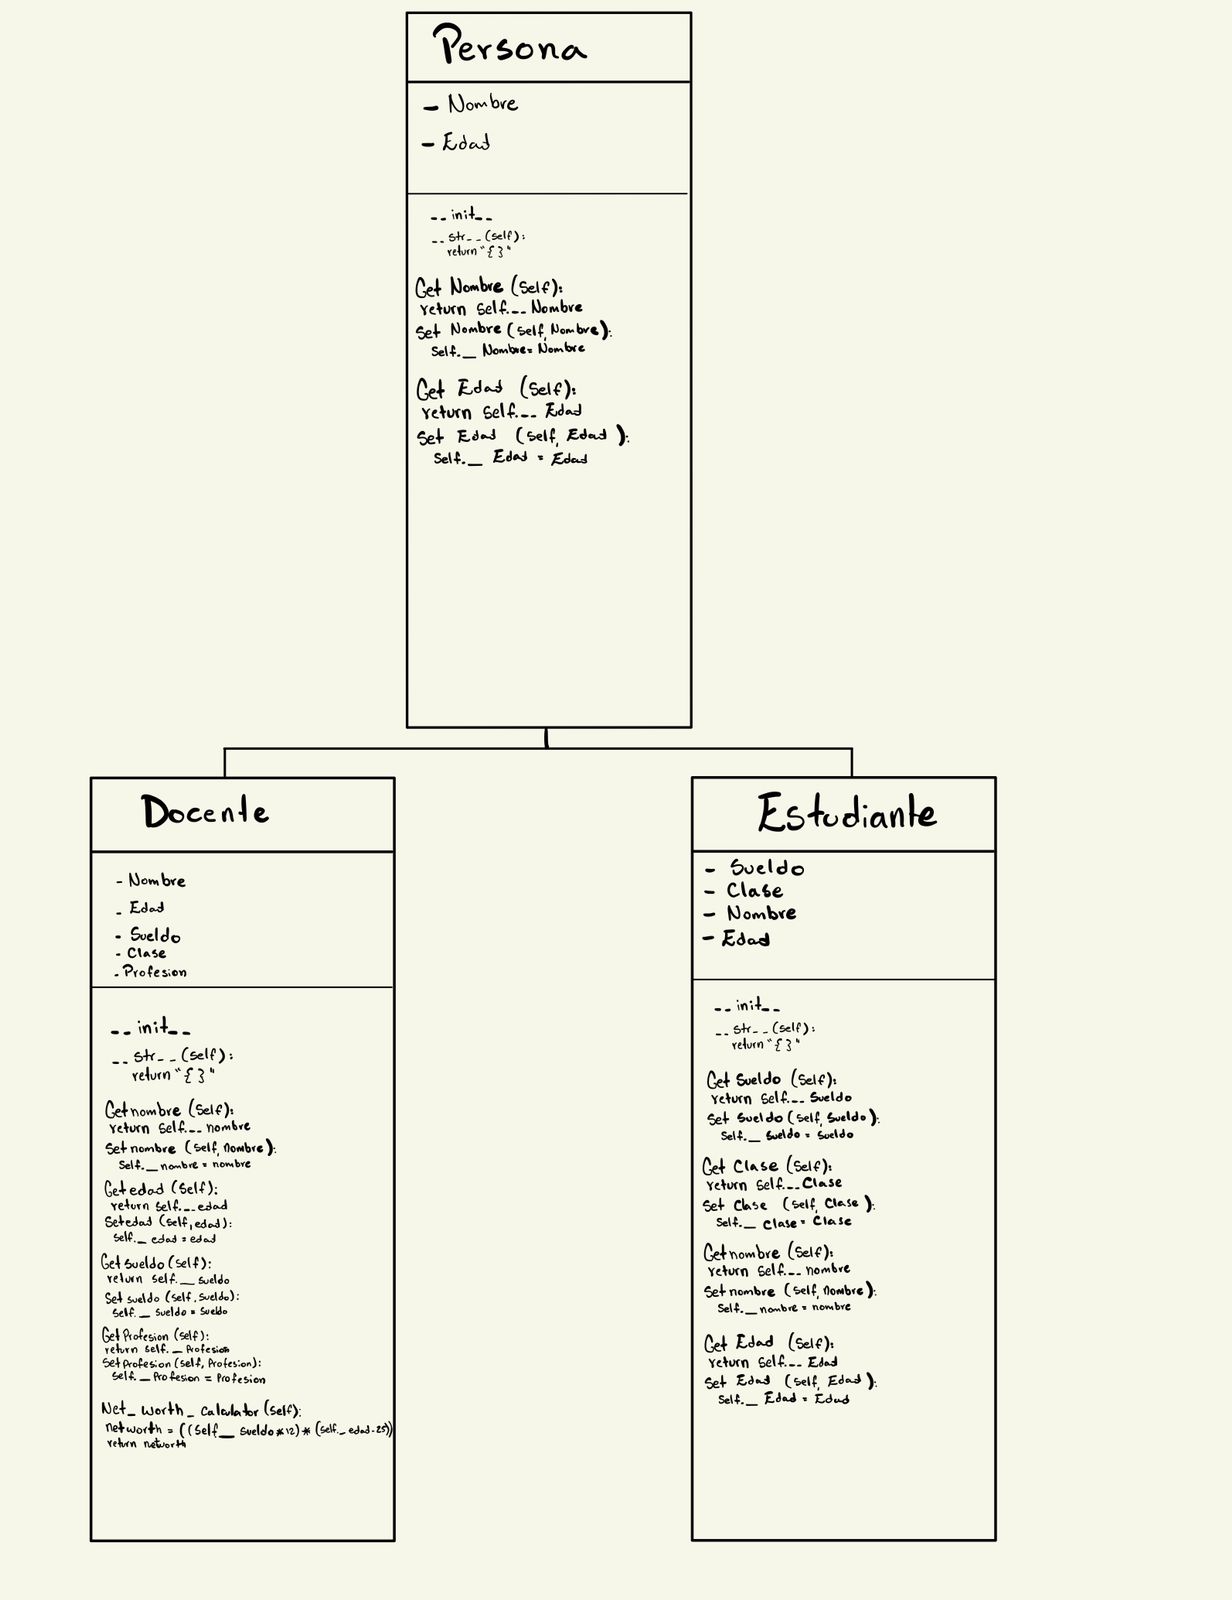 Persona
- Nombre
- Edad
__init__
__str__(self):
return "{}"
Get Nombre (Self):
return self.__Nombre
Set Nombre (self, Nombre):
Self.__ Nombre = Nombre
Get Edad (Self):
return self.__ Edad
Set Edad (self, Edad):
Self.__ Edad = Edad
Docente
- Nombre
- Edad
- Sueldo
- Clase
- Profesion
__init__
__str__(self):
return "{}"
Get nombre (Self):
return self.__ nombre
Set nombre (self, nombre):
Self.__ nombre = nombre
Get edad (Self):
return self.__ edad
Set edad (self, edad):
self.__ edad = edad
Get sueldo (self):
return self.__ sueldo
Set sueldo (self, sueldo):
self.__ sueldo = sueldo
Get Profesion (self):
return self.__ Profesion
Set Profesion (self, Profesion):
self.__ Profesion = Profesion
Net_Worth_Calculator (self):
networth = ((self__ sueldo*12)*(self._ edad-25))
return networth
Estudiante
- Sueldo
- Clase
- Nombre
- Edad
__init__
__str__(self):
return "{}"
Get Sueldo (Self):
return self.__ Sueldo
Set Sueldo (self, Sueldo):
Self.__ Sueldo = Sueldo
Get Clase (Self):
return self.__ Clase
Set Clase (self, Clase):
Self.__ Clase = Clase
Get nombre (Self):
return self.__ nombre
Set nombre (self, nombre):
Self.__ nombre = nombre
Get Edad (Self):
return self.__ Edad
Set Edad (self, Edad):
Self.__ Edad = Edad